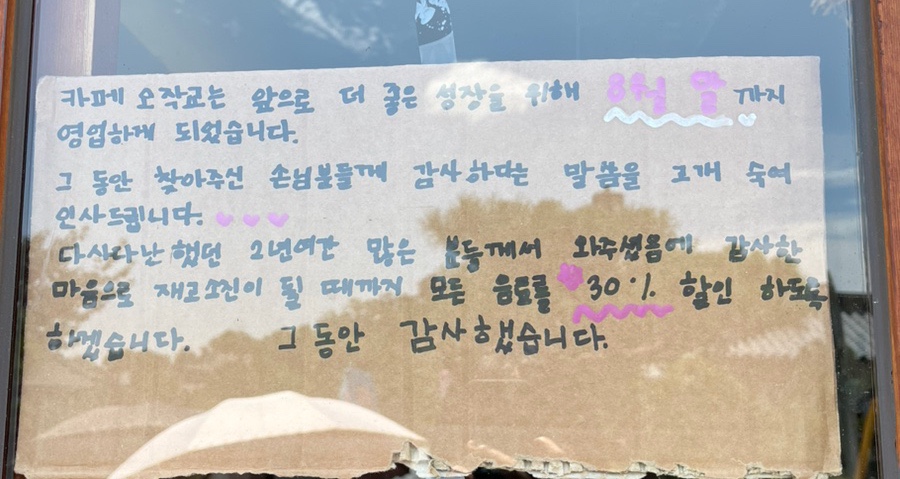 카페 오작교는 앞으로 더 좋은 성장을 위해 8월 말 까지
영업하게 되었습니다.
그 동안 찾아주신 손님분들께 감사하다는 말씀을 고개 숙여
인사드립니다.
다사다난했던 2년여간 많은 분들께서 와주셨음에 감사한
마음으로 재고소진이 될 때까지 모든 음료를 30% 할인 하도록
하겠습니다. 그동안 감사했습니다.